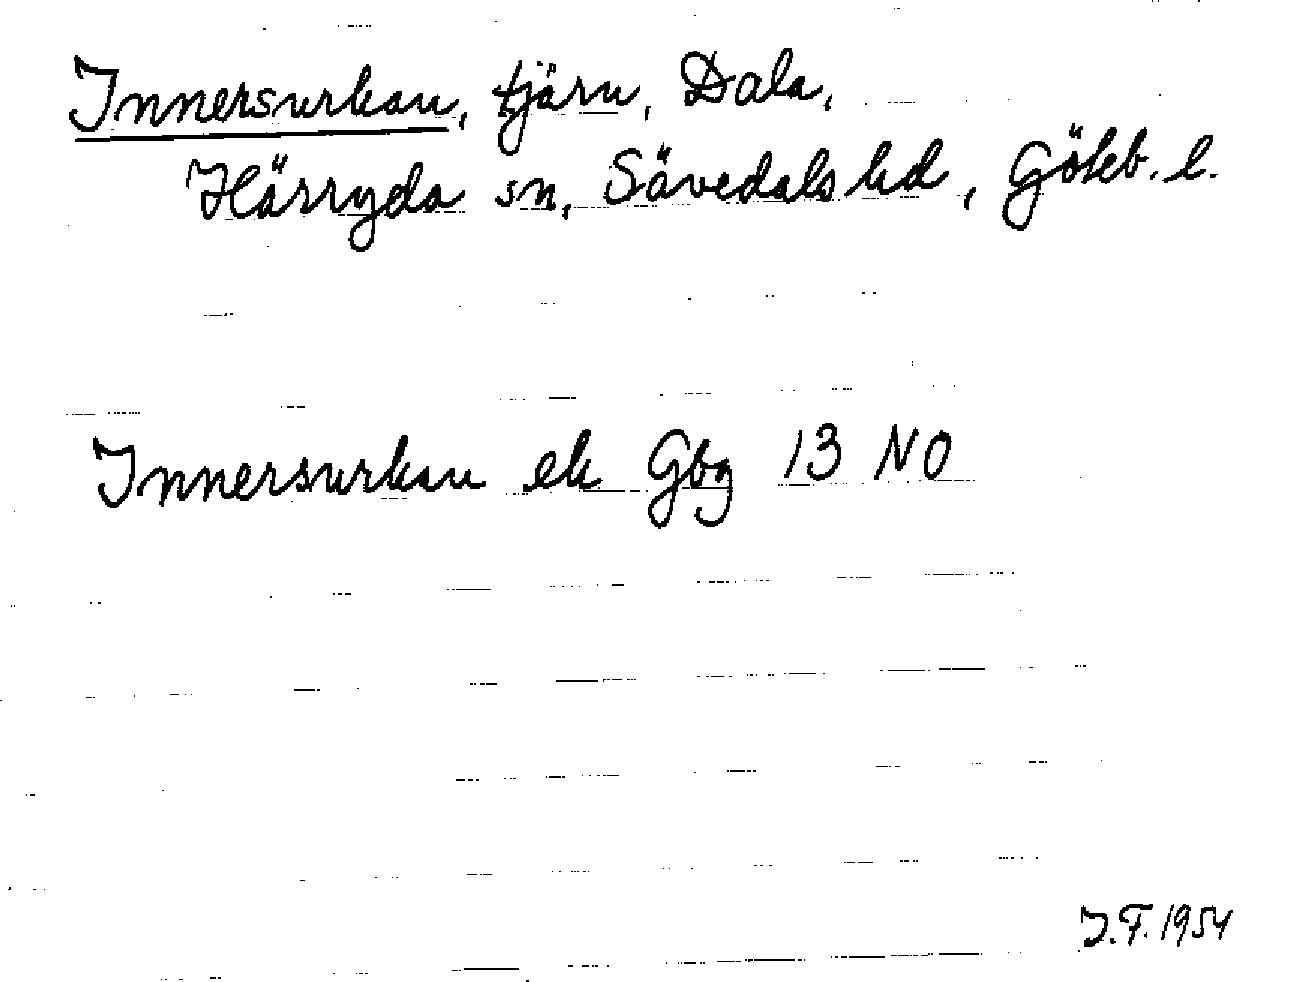 Innersurkan, tjärn, Dala,
Härryda sn, Sävedals hd, Göteb. l.
Innersurkan ek Gbg 13 NO
J.F. 1954